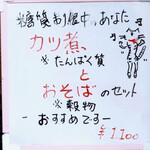 糖質制限中のあなた
カツ煮
※たんぱく質
と
おそばのセット
※穀物
- おすすめですー
¥1.100